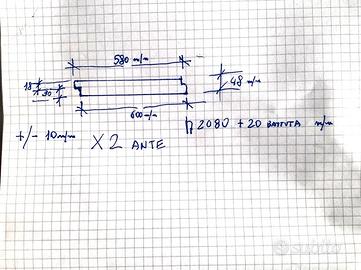 580 m/m
18
30
48 m/m
600 m/m
+/- 10 m/m
X2 ANTE
h 2080 + 20 BATTUTA m/m
subito